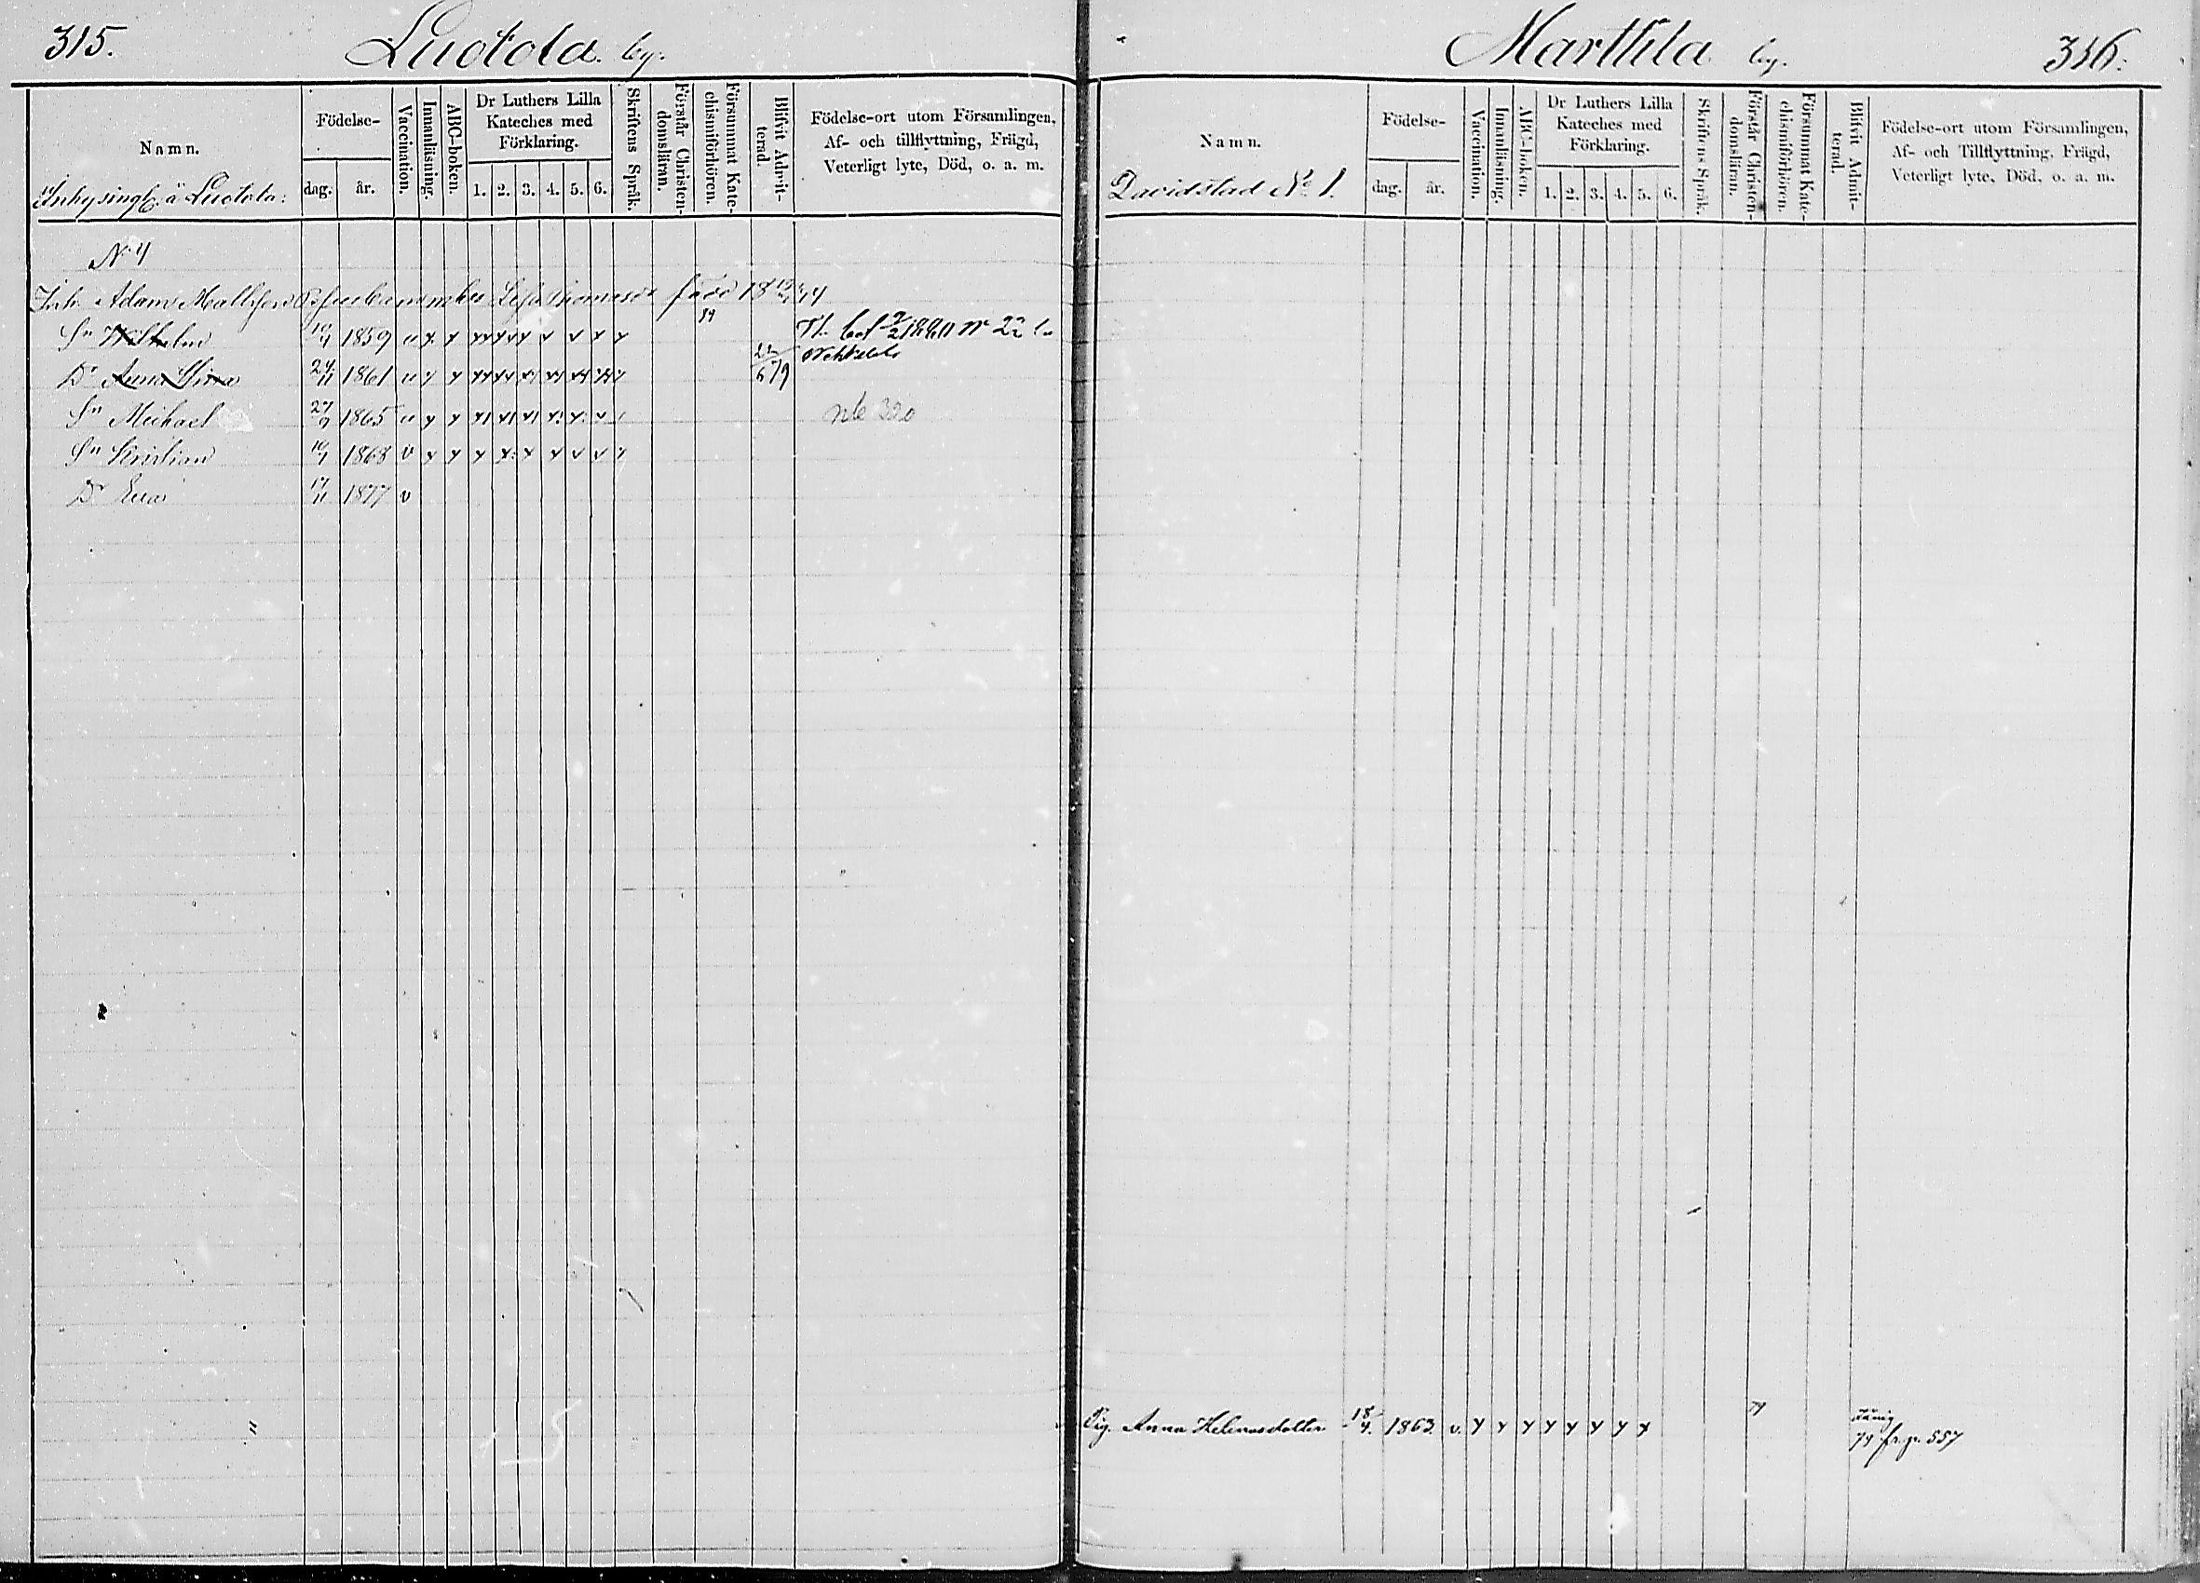 315. Luotola. by.
Namn.
Födelse-
dag. år.
Vaccination.
Innanläsning.
ABC-boken.
Dr Luthers Lilla
Kateches med
Förklaring.
1. 2. 3. 4. 5. 6.
Skriftens Språk.
Förstår Christen-
domsläran.
Försummat Kate-
chismiförhören.
Blifvit Admit-
terad.
Födelse-ort utom Församlingen,
Af- och tillflyttning, Frägd,
Veterligt lyte, Död, o. a. m.
å Luotola:
No 4
Inh. Adam Mattsson Thomasdr född 18
Sn Wilhelm 10/4 1859 v
Dr Anna Stina 24/11 1861 v 6 79
Sn Michael 27/9 1865 v 320
Sn Kristian 10/1 1868 v
Dr Eva 17/11 1877 v
Marttila by. 316.
Namn.
Davidstad No 1.
Födelse-
dag. år.
Vaccination.
Innanläsning.
ABC-boken.
Dr Luthers Lilla
Kateches med
Förklaring.
1. 2. 3. 4. 5. 6.
Skriftens Språk.
Förstår Christen-
domsläran.
Försummat Kate-
chismiförhören.
Blifvit Admit-
terad.
Födelse-ort utom Församlingen,
Af- och Tillflyttning, Frägd,
Veterligt lyte, Död, o. a. m.
Pig. Anna Helenasdotter 18/4. 1863. v.
79 fr. p. 557